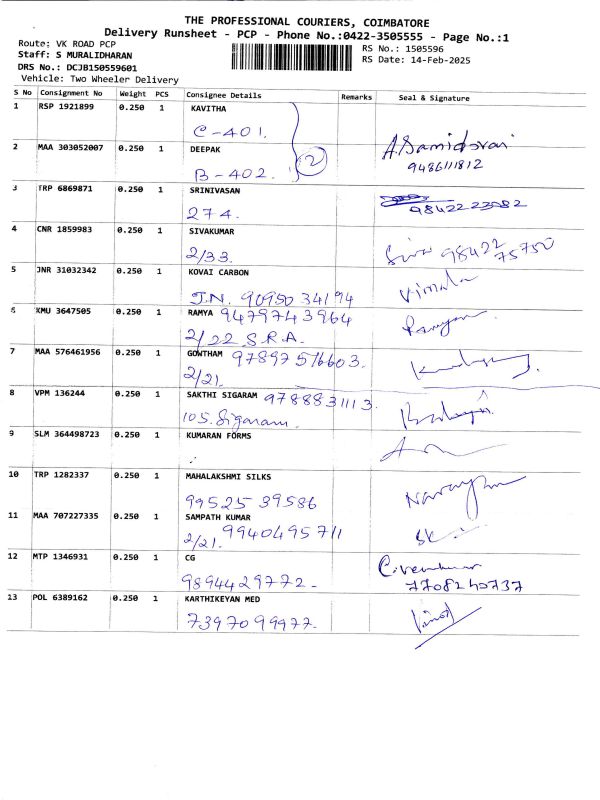 THE PROFESSIONAL COURIERS, COIMBATORE
Delivery Runsheet - PCP - Phone No.:0422-3505555 - Page No.:1
Route: VK ROAD PCP
RS No.: 1505596
Staff: S MURALIDHARAN
RS Date: 14-Feb-2025
DRS No.: DCJB150559601
Vehicle: Two Wheeler Delivery
S No Consignment No Weight PCS Consignee Details Remarks Seal & Signature
1 RSP 1921899 0.250 1 KAVITHA
C-401.
2 MAA 303052007 0.250 1 DEEPAK
B-402. 2
9486111812
3 TRP 6869871 0.250 1 SRINIVASAN
274.
98422 23982
4 CNR 1859983 0.250 1 SIVAKUMAR
2/33.
Siva 98422 75750
5 JNR 31032342 0.250 1 KOVAI CARBON
J.N. 90950 34194
Vimala
6 KMU 3647505 0.250 1 RAMYA 9479743964
2/22 S.R.A.
7 MAA 576461956 0.250 1 GOWTHAM 97897 516603.
2/21.
8 VPM 136244 0.250 1 SAKTHI SIGARAM 9788831113.
105. Sigaram.
9 SLM 364498723 0.250 1 KUMARAN FORMS
10 TRP 1282337 0.250 1 MAHALAKSHMI SILKS
99525 39586
11 MAA 707227335 0.250 1 SAMPATH KUMAR
2/21. 9940495711
SK
12 MTP 1346931 0.250 1 CG
9894429772-
7708240737
13 POL 6389162 0.250 1 KARTHIKEYAN MED
7397099977.
Vinoth